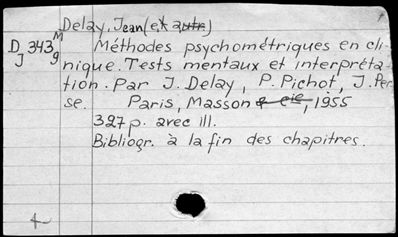 Delay, Jean (et autr.)
D 343 M
J 9
Méthodes psychométriques en cli-
nique. Tests mentaux et interpréta-
tion. Par J. Delay, P. Pichot, J. Per-
se. Paris, Masson & cie, 1955
327 p. avec ill.
Bibliogr. à la fin des chapitres.
4